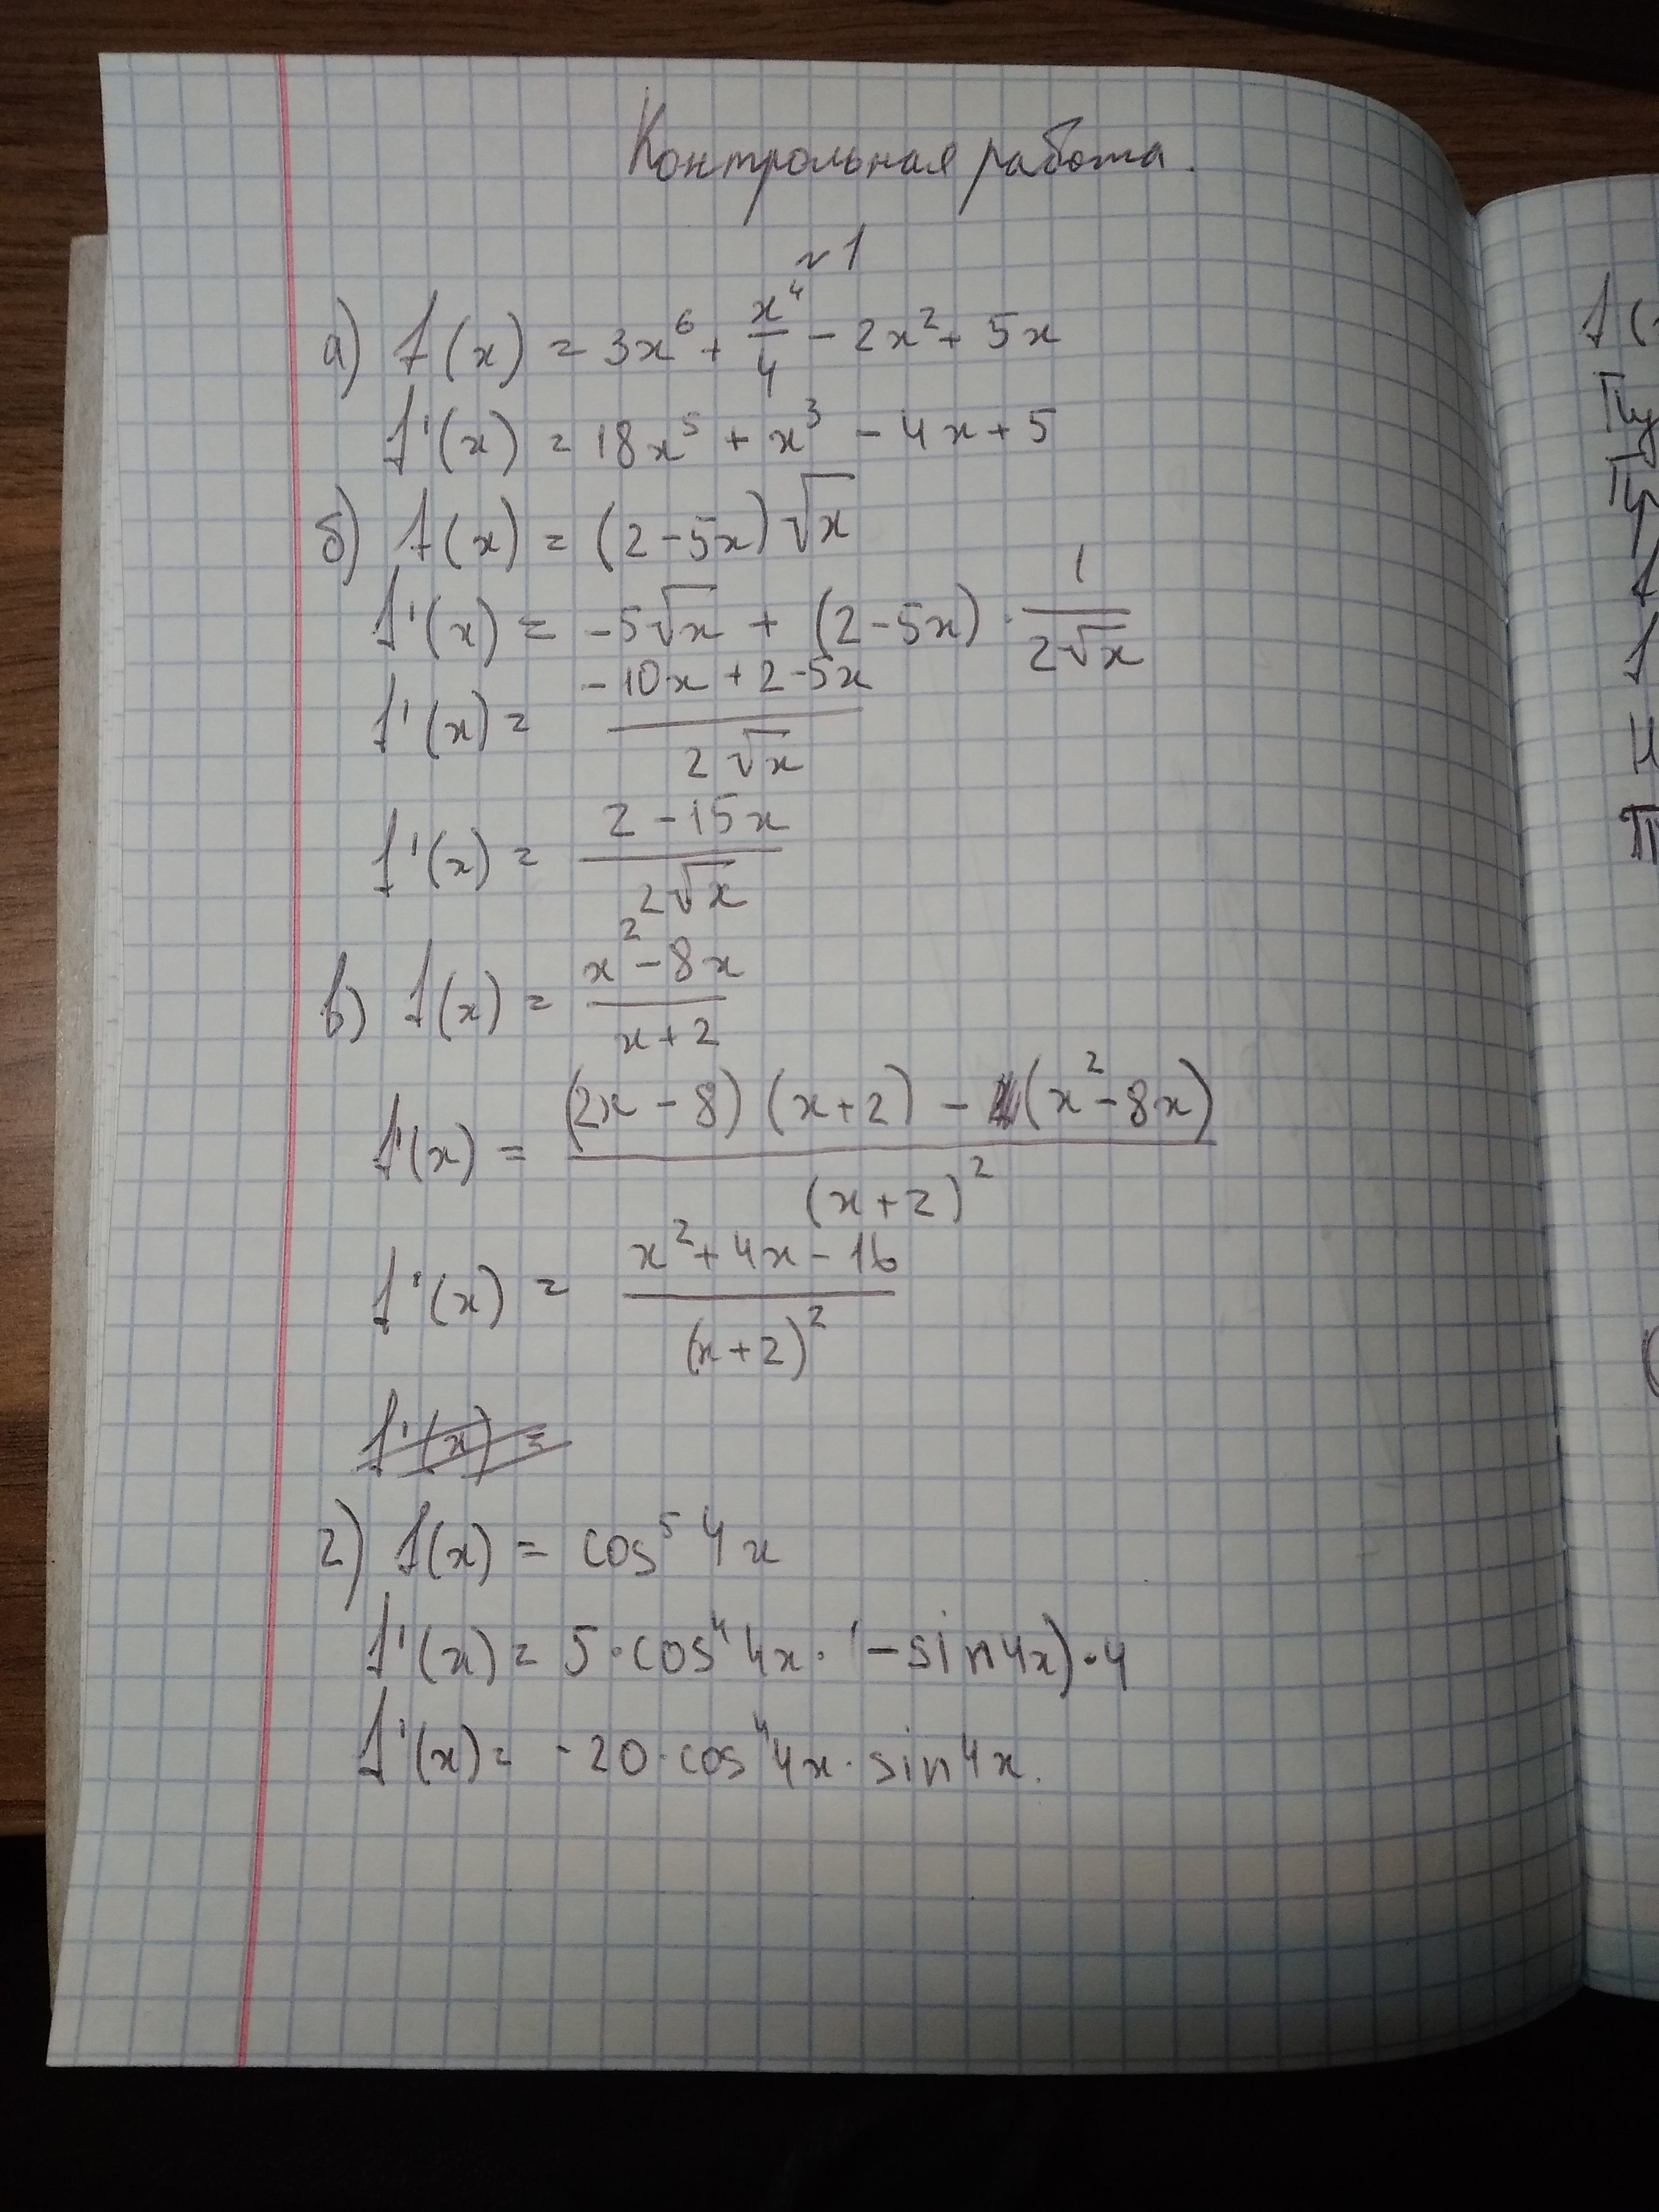 Контрольная работа.
~1
а) f(x) = 3x⁶ + x⁴/4 - 2x² + 5x
f'(x) = 18x⁵ + x³ - 4x + 5
б) f(x) = (2-5x)√x
f'(x) = -5√x + (2-5x) · 1/(2√x)
f'(x) = (-10x + 2 - 5x)/(2√x)
f'(x) = (2 - 15x)/(2√x)
в) f(x) = (x² - 8x)/(x+2)
f'(x) = ((2x - 8)(x+2) - (x² - 8x))/(x+2)²
f'(x) = (x² + 4x - 16)/(x+2)²
f'(x) =
г) f(x) = cos⁵ 4x
f'(x) = 5·cos⁴4x·(-sin4x)·4
f'(x) = -20·cos⁴4x·sin4x.
f(
Пу